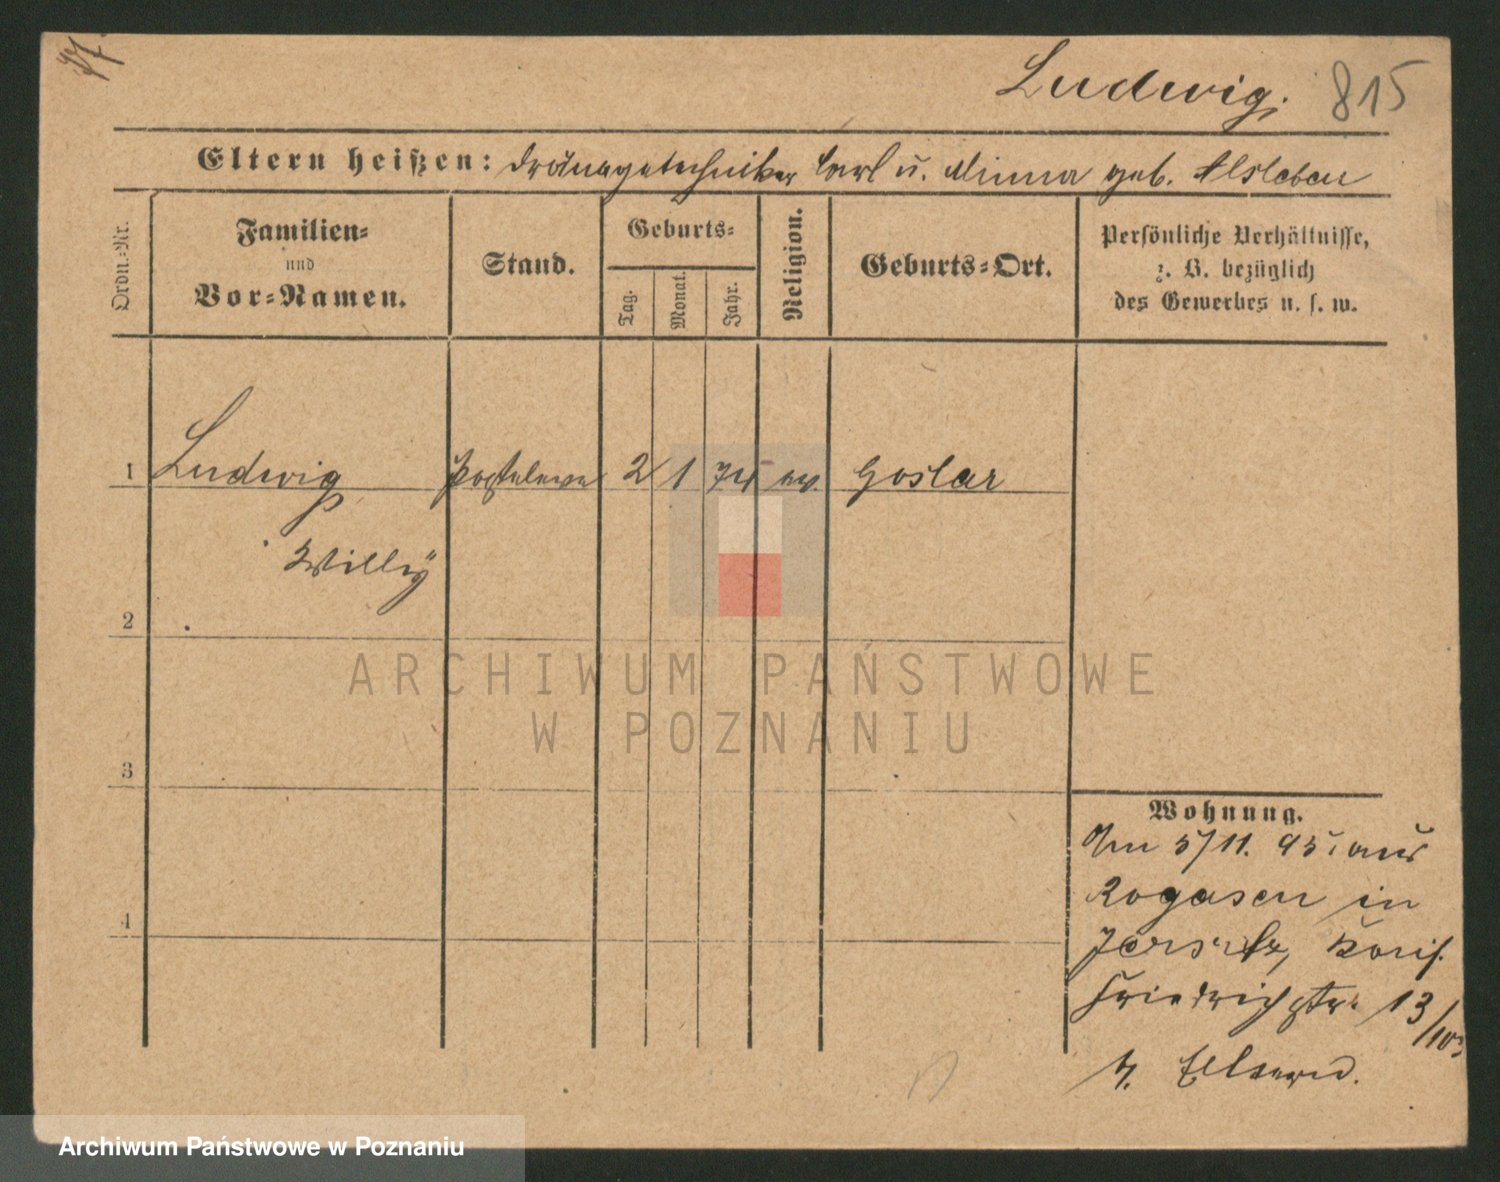 Ludwig. 815
Eltern heißen: Drainagetechniker Carl u. Minna geb. Alsleben
Ordn.-Nr.
Familien-
und
Vor-Namen.
Stand.
Geburts-
Tag.
Monat.
Jahr.
Religion.
Geburts-Ort.
Persönliche Verhältnisse,
z. B. bezüglich
des Gewerbes u. s. w.
1 Ludwig Posteleve 2 1 74 ev. Goslar
Willÿ
2
3
4
Wohnung.
Am 5/11. 95. aus
Rogasen in
Jersitz, Kais.
Friedrichstr. 13
z. Eltern
ARCHIWUM PAŃSTWOWE
W POZNANIU
Archiwum Państwowe w Poznaniu